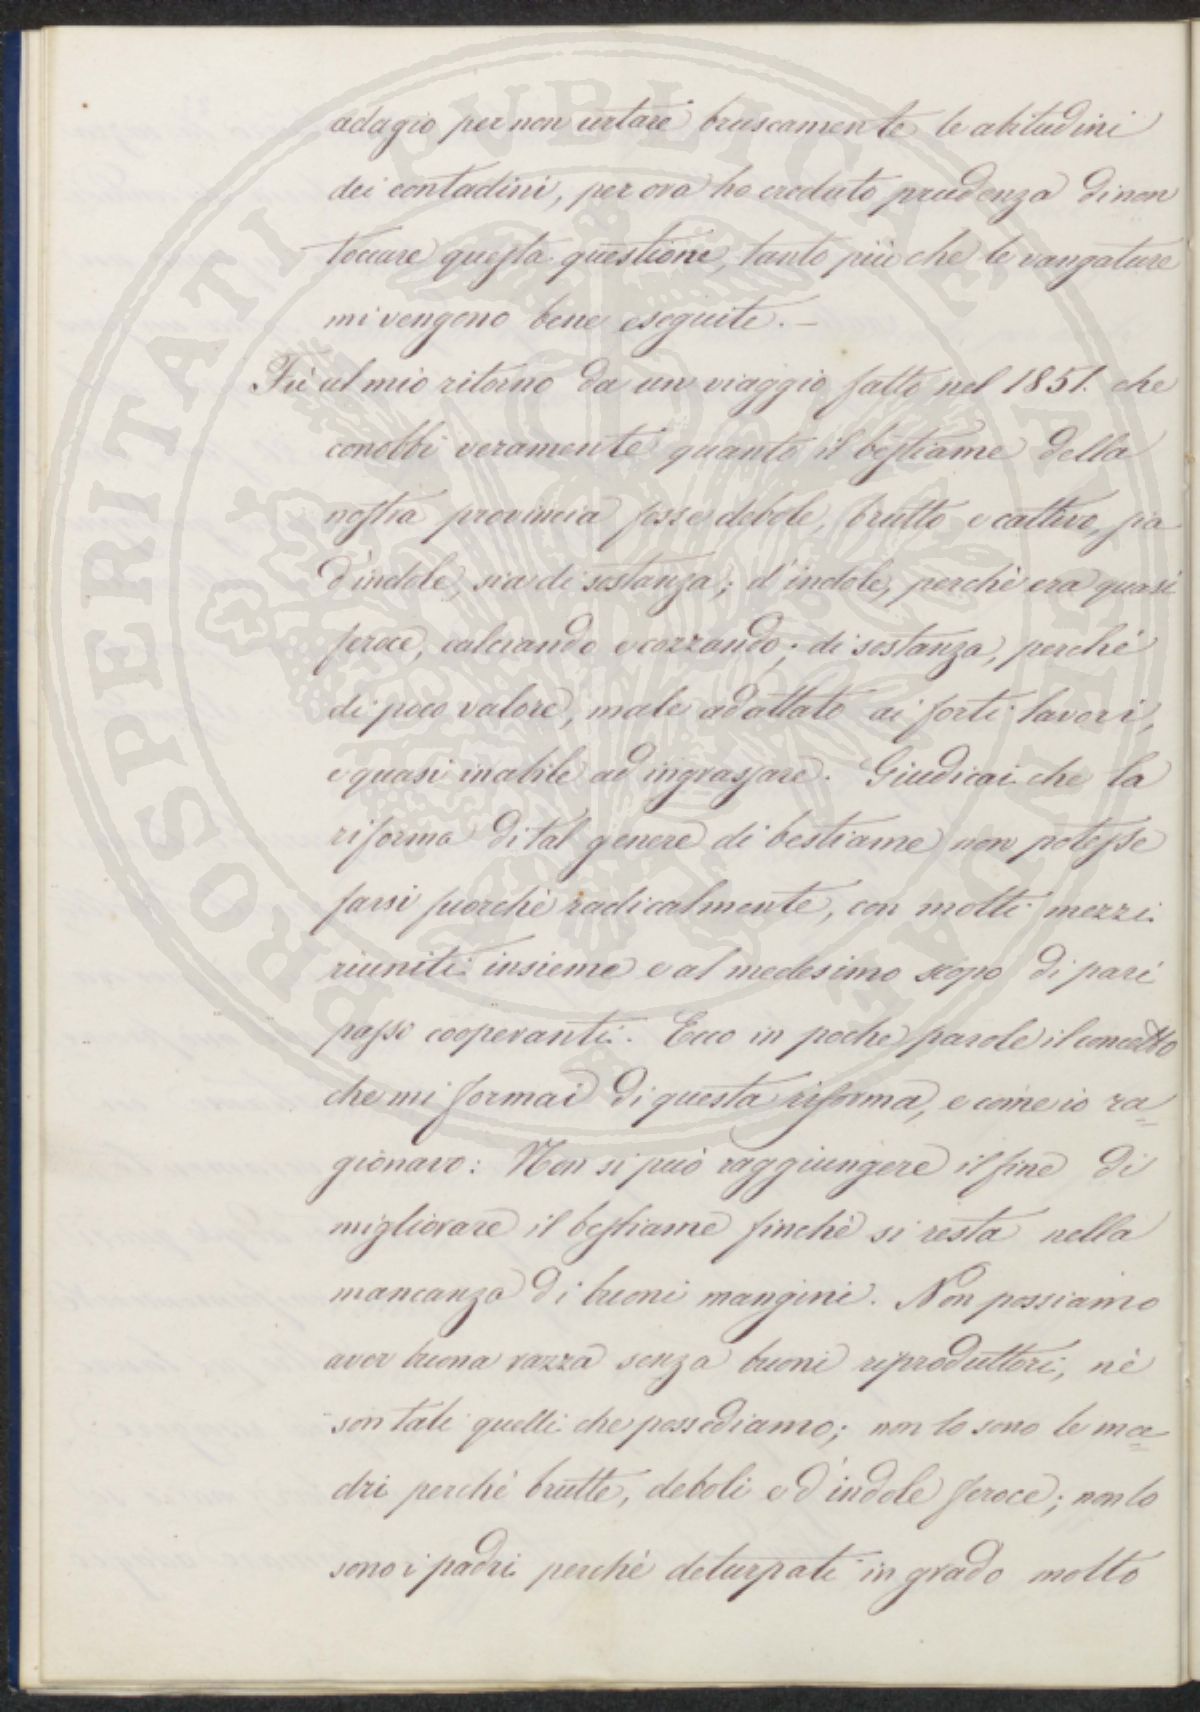 adagio per non urtare bruscamente le abitudini
dei contadini, per ora ho creduto prudenza di non
toccare questa questione, tanto più che le vangature
mi vengono bene eseguite. –
Fù al mio ritorno da un viaggio fatto nel 1851. che
conobbi veramente quanto il bestiame della
nostra provincia fosse debole, brutto e cattivo, sia
d'indole, sia di sostanza; d'indole, perchè era quasi
feroce, calciando e cozzando; di sostanza, perchè
di poco valore, male adattato ai forti lavori,
e quasi inabile ad ingrassare. Giudicai che la
riforma di tal genere di bestiame non potesse
farsi fuorchè radicalmente, con molti mezzi
riuniti insieme e al medesimo scopo di pari
passo cooperanti. Ecco in poche parole il concetto
che mi formai di questa riforma, e come io ra=
gionavo: Non si può raggiungere il fine di
migliorare il bestiame finchè si resta nella
mancanza di buoni mangimi. Non possiamo
aver buona razza senza buoni riproduttori, nè
son tali quelli che possediamo; non lo sono le ma=
dri perchè brutte, deboli e d'indole feroce; non lo
sono i padri perchè deturpati in grado molto
PROSPERITATI PVBLICAE AVGENDAE